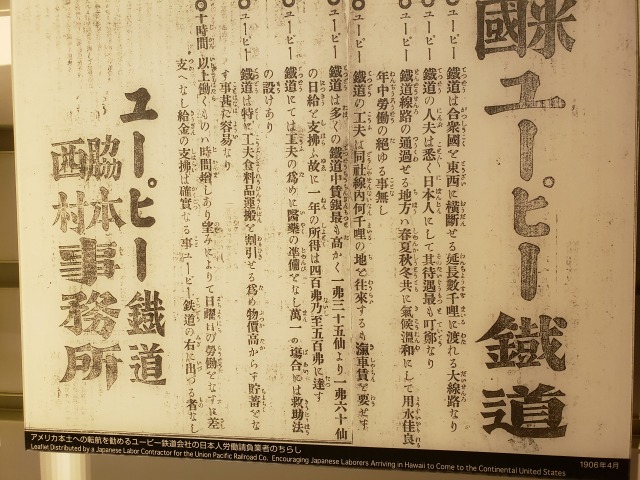 米國ユーピー鐵道
◎ユーピー鐵道は合衆國を東西に橫斷せる延長數千哩に渡れる大線路なり
◎ユーピー鐵道の人夫は悉く日本人にして其待遇最も叮嚀なり
◎ユーピー鐵道線路の通過せる地方ハ春夏秋冬共に氣候溫和にして用水佳良
年中勞働の絕ゆる事無し
◎ユーピー鐵道の工夫は同社線內何千哩の地を徃來するも瀛車賃を要せず
◎ユーピー鐵道は多くの鐵道中賃銀最も高かく一弗三十五仙より一弗六十仙
の日給を支拂ふ故に一年の所得は四百弗乃至五百弗に達す
◎ユーピー鐵道にては工夫の爲めに醫藥の準備をなし萬一の塲合には救助法
の設けあり
◎ユーピー鐵道は特に工夫食料品運搬を割引せる爲め物價高からず貯蓄をな
す事甚た容易なり
◎十時間以上働くものハ時間增しあり望みによりて日曜日も勞働をなすに差
支へなし給金の支拂は確實なる事ユーピー鉄道の右に出づる者なし
ユーピー鐵道
脇本
西村
事務所
アメリカ本土への転航を勧めるユーピー鉄道会社の日本人労働請負業者のちらし
Leaflet Distributed by a Japanese Labor Contractor for the Union Pacific Railroad Co. Encouraging Japanese Laborers Arriving in Hawaii to Come to the Continental United States
1906年4月